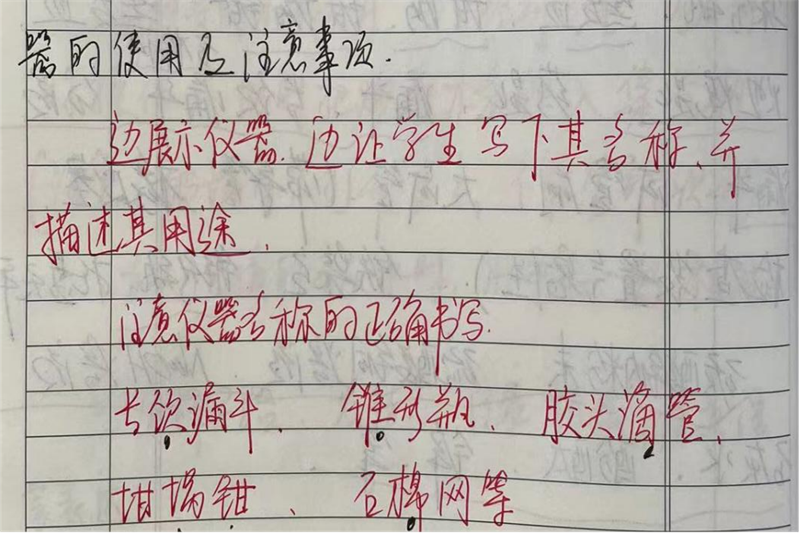 器的使用及注意事项.
边展示仪器.边让学生写下其名称、并
描述其用途.
注意仪器名称的正确书写.
长饮漏斗、锥形瓶、胶头滴管、
坩埚钳、石棉网等